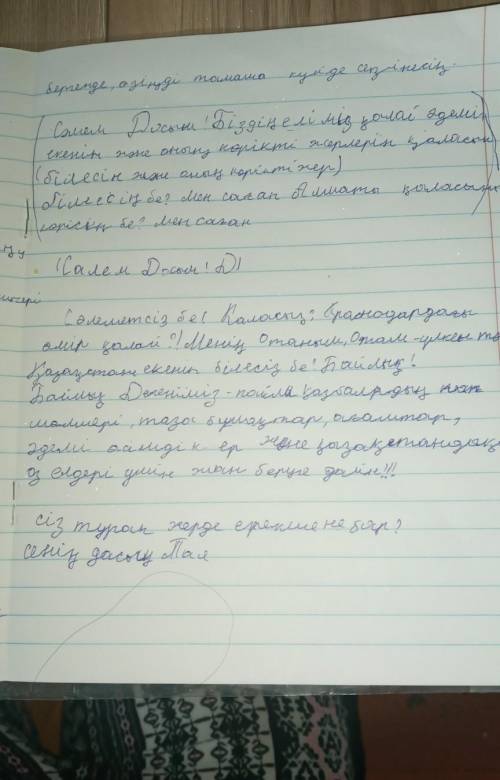 бергенде, өзіңді тамаша күйде сезінесің.
Сәлем Досым! Біздің елімыз қалай әдемі
екенін және оның көрікті жерлерін қаласың
(білесін және оның көрікті жер)
білессің бе? Мен саған Алматы қаласының
көрісің бе? Мен саған
(Сәлем Досым! Д)
Сәлеметсіз бе! Қаласың? Краснодардағы
өмір қалай?! Менің Отаным, Отам-үлкен
Қазақстан екенін білесіз бе! Байлық!
Байлық Дегеніміз - пайлы қазбалардың
таза бұлақтар,
әдемі ер және қазақстандық
өз елдері үшін жан беруге дайін!!!
сіз тұрған жерде ерекше не бар?
сенің досың Тая